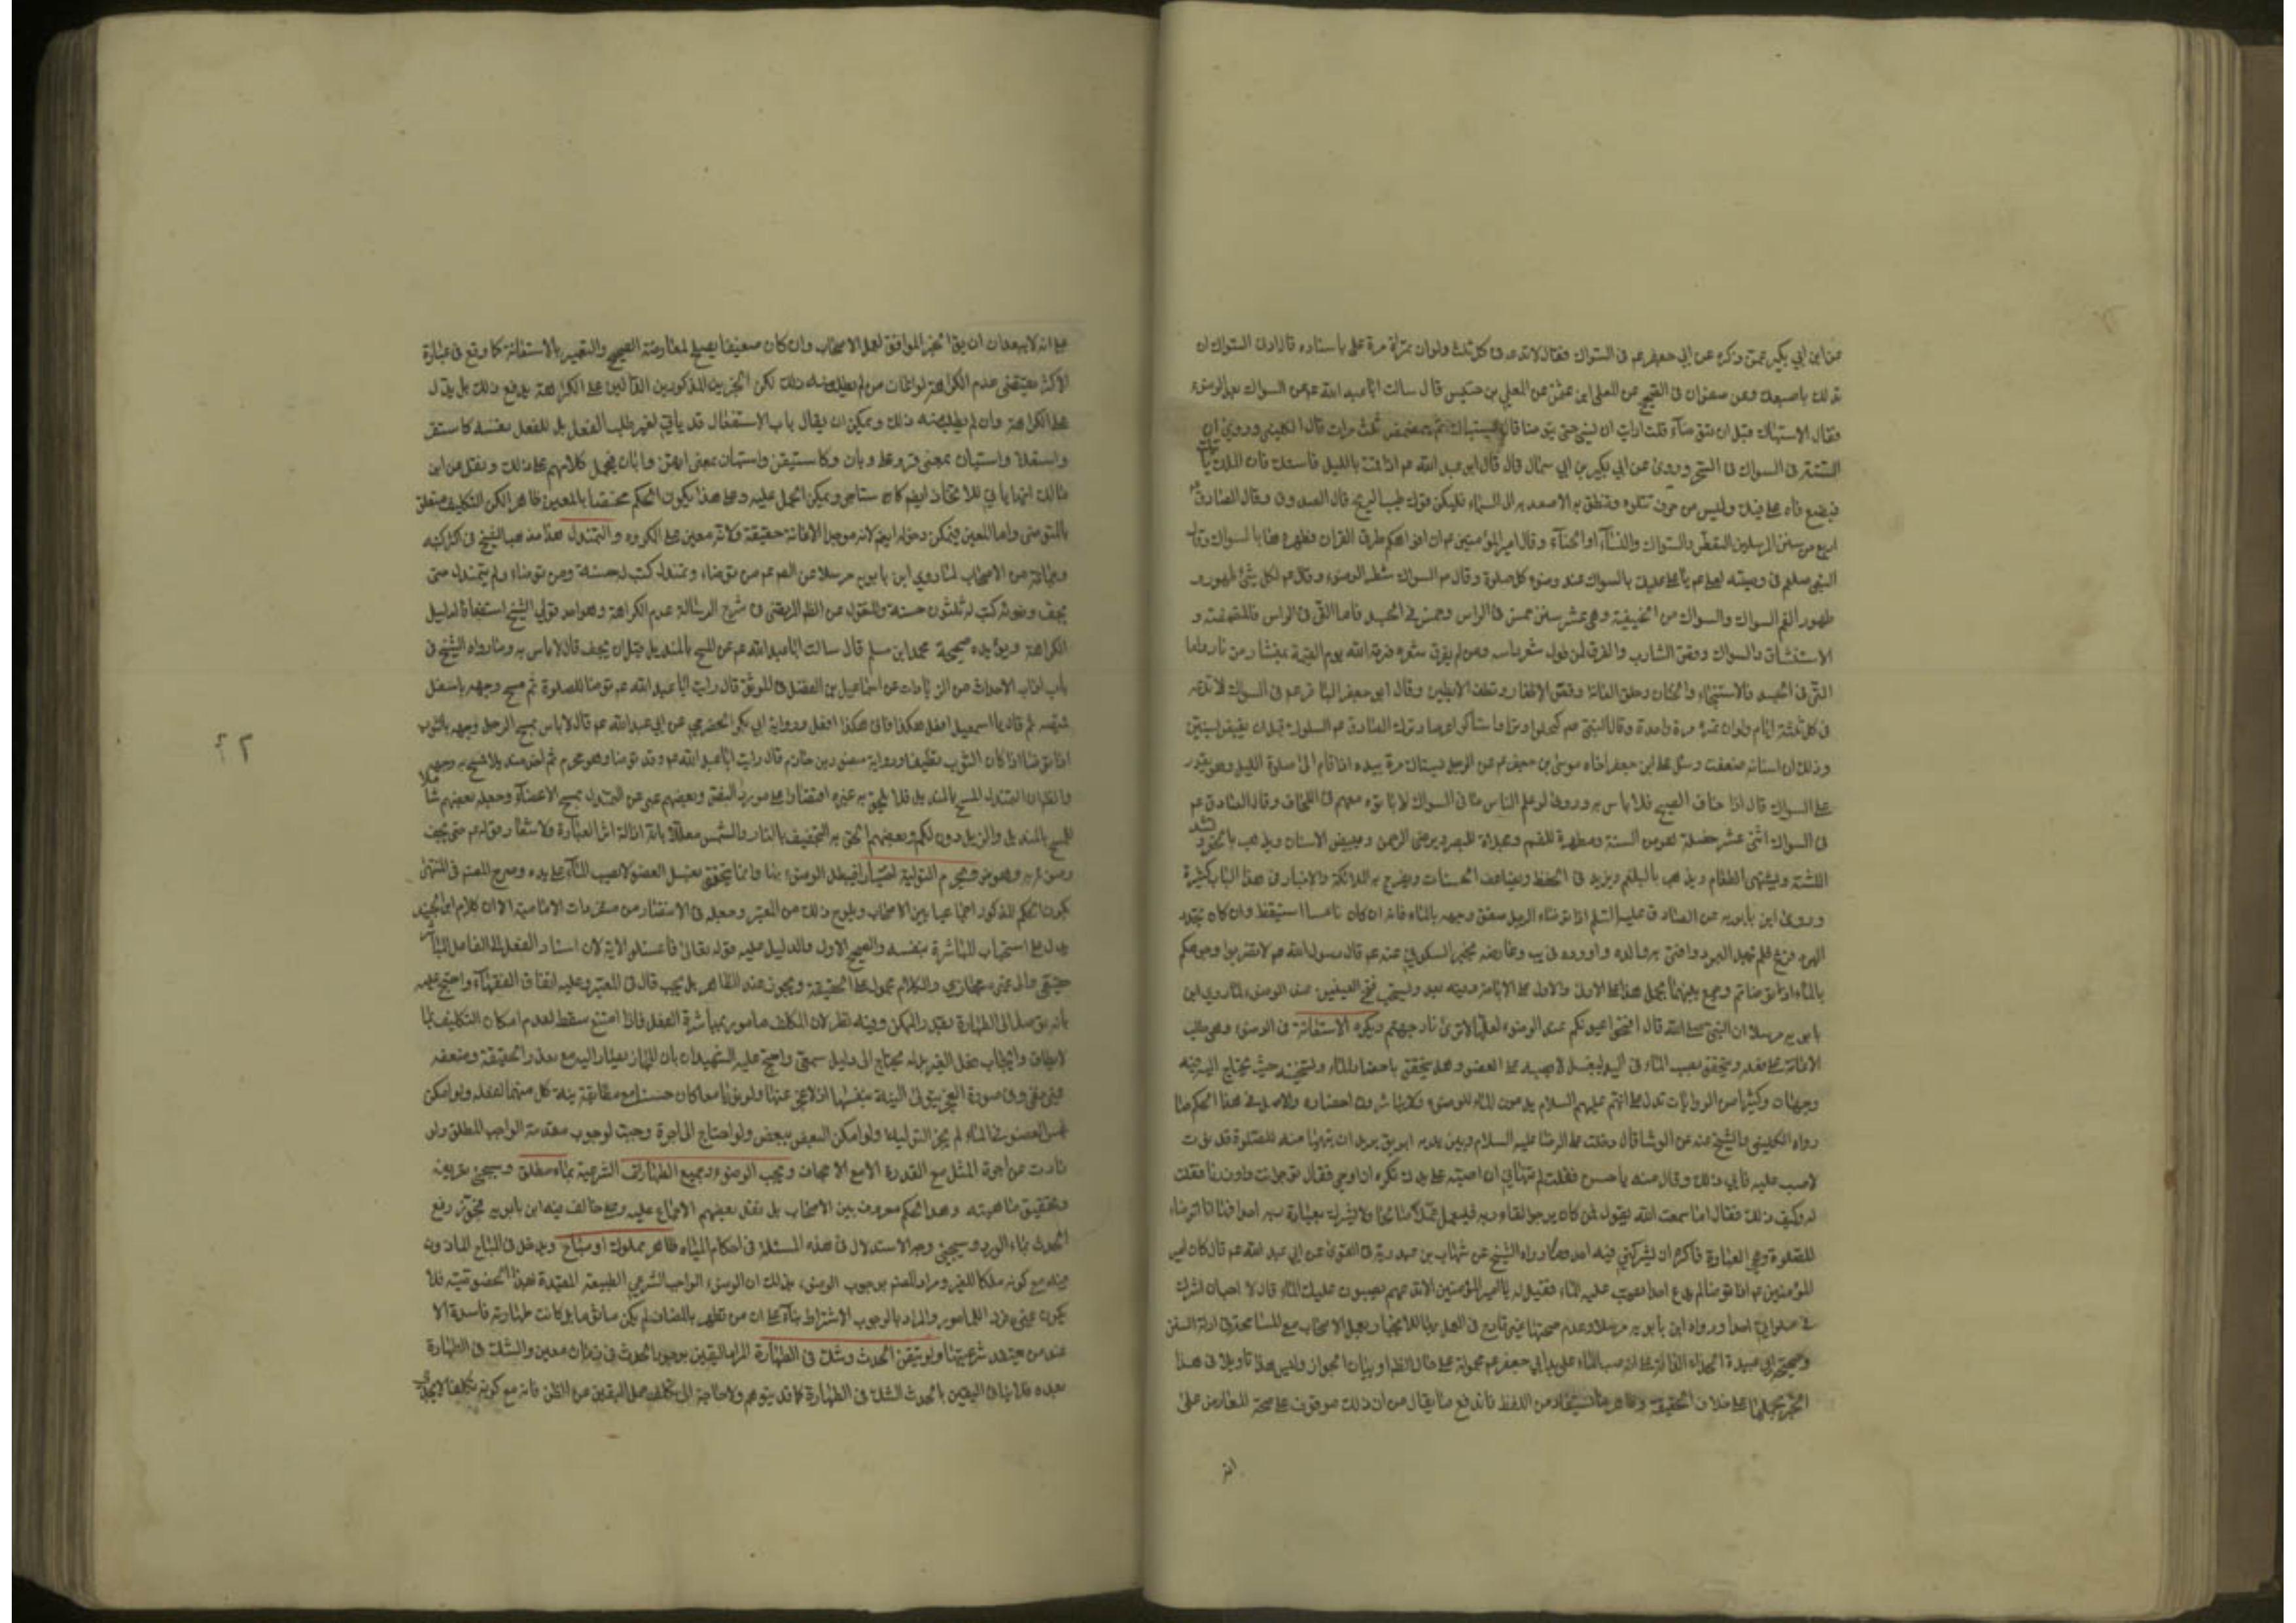 عن ابن ابي بكير عمن ذكره عن ابي جعفر عم فى السواك فقال لا تدعه فى كل ثلث ولو ان تمرّه مرة على باسناده قال ادنى السواك ان
تدلك باصبعك وعن صفوان فى الصحيح عن المعلى ابى عثمن عن المعلى بن خنيس قال سالت ابا عبد الله عم عن السواك بعد الوضوء
فقال الاستياك قبل ان تتوضأ قلت ارايت ان نسى حتى يتوضأ قال يستاك ثم يتمضمض ثلث مرات قال الكلينى وروى ان
السنة فى السواك فى السحر وروى عن ابى بكير بن ابى سمال قال قال ابو عبد الله عم اذا قمت بالليل فاستك فان الملك
فيضع فاه على فيك وليس من حرف تتلوه وتنطق به الا صعد به الى السماء فليكن فوك طيب الريح قال الصدوق وقال الصادق
اربع من سنن المرسلين التعطر والسواك والنساء والحناء وقال امير المؤمنين عم ان افواهكم طرق القران فطهروها بالسواك وقال
النبى صلعم فى وصيته لعلى عم يا على عليك بالسواك عند وضوء كل صلوة وقال عم السواك شطر الوضوء وقال عم لكل شئ طهور و
طهور الفم السواك والسواك من الحنيفية وهى عشر سنن خمس فى الراس وخمس فى الجسد فاما التى فى الراس فالمضمضة و
الاستنشاق والسواك وقص الشارب والفرق لمن طول شعر راسه ومن لم يفرق شعره فرقه الله يوم القيمة بمنشار من نار واما
التى فى الجسد فالاستنجاء والختان وحلق العانة وقص الاظفار ونتف الابطين وقال ابو جعفر الباقر عم فى السواك لا تدعه
فى كل ثلثة ايام ولو ان تمره مرة واحدة وقال النبى صم اكتحلوا وترا واستاكوا عرضا وترك الصادق عم السواك قبل ان يقبض بسنتين
وذلك ان اسنانه ضعفت وسئل على ابن جعفر اخاه موسى بن جعفر عم عن الرجل يستاك مرة بيده اذا قام الى صلوة الليل وهو يقدر
على السواك قال اذا خاف الصبح فلا باس به وروى لو علم الناس ما فى السواك لاباتوه معهم فى اللحاف وقال الصادق عم
فى السواك اثنى عشر خصلة هو من السنة ومطهرة للفم ومجلاة للبصر ويرضى الرحمن ويبيض الاسنان ويذهب بالحفر ويشد
اللثة ويشهى الطعام ويذهب بالبلغم ويزيد فى الحفظ ويضاعف الحسنات ويفرح به الملائكة والاخبار فى هذا الباب كثيرة
وروى ابن بابويه عن الصادق عليه السلم اذا توضاء الرجل صفق وجهه بالماء فانه ان كان ناعسا استيقظ وان كان يجد
البرد فزع فلم يجد البرد وافتى به والده واورده فى يب وعارضه بخبر السكونى عنه عم قال رسول الله صم لا تضربوا وجوهكم
بالماء اذا توضاتم وجمع بينهما بحمل هذا على الاولى والاول على الاباحة وفيه بعد ويستحب فتح العينين عند الوضوء لما روى ابن
بابويه مرسلا ان النبى صلى الله قال افتحوا عيونكم عند الوضوء لعلها لا ترى نار جهنم ويكره الاستعانة فى الوضوء وهى طلب
الاعانة على فعله ويتحقق بصب الماء فى اليد ليغسل لا بصبه على العضو وهل يتحقق باحضار الماء وتسخينه حيث يحتاج اليه فيه
وجهان وكثير من الروايات تدل على انهم عليهم السلام يدعون الماء للوضوء ولا يباشرون احضاره والاصل فى هذا الحكم ما
رواه الكلينى والشيخ عنه عن الوشا قال دخلت على الرضا عليه السلام وبين يديه ابريق يريد ان يتهيأ منه للصلوة فدنوت
لاصب عليه فابى ذلك وقال مه يا حسن فقلت لم تنهانى ان اصبه على يدك تكره ان اوجر فقال تؤجر انت واوزر انا فقلت
له وكيف ذلك فقال اما سمعت الله يقول فمن كان يرجو لقاء ربه فليعمل عملا صالحا ولا يشرك بعبادة ربه احدا فها انا اتوضاء
للصلوة وهى العبادة فاكره ان يشركنى فيه احد وما رواه الشيخ عن شهاب بن عبد ربه فى القوى عن ابى عبد الله عم قال كان امير
المؤمنين عم اذا توضا لم يدع احدا يصب عليه الماء فقيل له يا امير المؤمنين لم لا تدعهم يصبون عليك الماء قال لا احب ان اشرك
فى صلوتى احدا ورواه ابن بابويه مرسلا وعدم صحتها غير قادح فى العمل بها للانجبار بعمل الاصحاب مع المسامحة فى ادلة السنن
وصحيحة ابى عبيدة الحذاء الدالة على انه صب الماء على يد ابى جعفر عم محمولة على حال الضرورة او بيان الجواز وليس هذا تاويلا فى هذا
الخبر بحملها على خلاف الحقيقة وظاهر ما يستفاد من اللفظ فاندفع ما يقال من ان ذلك موقوف على صحة المعارض على
انه
على انه لا يبعد ان يق الخبر الموافق لعمل الاصحاب وان كان ضعيفا يصلح لمعارضة الصحيح والتعبير بالاستعانة كما وقع فى عبارة
الاكثر يقتضى عدم الكراهة لو اعان من لم يطلب منه ذلك لكن الخبرين المذكورين الدالين على الكراهة يدفع ذلك بل يدل
على الكراهة وان لم يطلب منه ذلك ويمكن ان يقال باب الاستفعال قد ياتى لغير طلب الفعل بل للفعل نفسه كاستقر
واستعلا واستبان بمعنى قر وعلا وبان وكاستيقن واستهان بمعنى ايقن واهان فيحمل كلامهم على ذلك ونقل عن ابن
مالك انها ياتى للاتخاذ ايضا كاستاجر ويمكن الحمل عليه وعلى هذا يكون الحكم مختصا بالمعين ظاهرا لكن التكليف متعلق
بالمتوضى واما المعين فيمكن دخوله ايضا لانه موجد الاعانة حقيقة ولانه معين على المكروه والتمندل هذا مذهب الشيخ فى اكثر كتبه
وجماعة من الاصحاب لما روى ابن بابويه مرسلا عن الصم عم من توضاء وتمندل كتب له حسنة ومن توضاء ولم يتمندل حتى
يجف وضوئه كتب له ثلثون حسنة والمنقول عن المرتضى فى شرح الرسالة عدم الكراهة وهو احد قولى الشيخ استضعافا لدليل
الكراهة ويؤيده صحيحة محمد ابن مسلم قال سالت ابا عبد الله عم عن المسح بالمنديل قبل ان يجف قال لا باس به وما رواه الشيخ فى
باب اداب الاحداث من الزيادات عن اسماعيل بن الفضل فى الموثق قال رايت ابا عبد الله عم توضأ للصلوة ثم مسح وجهه باسفل
قميصه ثم قال يا اسمعيل افعل هكذا فانى هكذا افعل ورواية ابى بكر الحضرمى عن ابى عبد الله عم قال لا باس بمسح الرجل وجهه بالثوب
اذا توضأ اذا كان الثوب نظيفا ورواية منصور بن حازم قال رايت ابا عبد الله عم وقد توضأ وهو محرم ثم اخذ منديلا فمسح به وجهه
والظ ان التمندل المسح بالمنديل فلا يلحق به غيره اقتصارا على مورد النص وبعضهم عبر عن التمندل بمسح الاعضاء وجعله بعضهم شاملا
للمسح بالمنديل والذيل دون الكم وبعضهم الحق به التجفيف بالنار والشمس معللا بان ازالة اثر العبادة ولاشعار قوله عم حتى يجف
وضوءه به وهو ضعيف ويحرم التولية اختيارا فيبطل الوضوء بها وانما يتحقق بغسل العضو لا بصب الماء على يده وصرح المصم فى المنتهى
بكون الحكم المذكور اجماعيا بين الاصحاب ويلوح ذلك من المعتبر وجعله فى الانتصار من متفردات الامامية الا ان كلام ابن الجنيد
يدل على استحباب المباشرة بنفسه والصحيح الاول والدليل عليه قوله تعالى فاغسلوا الاية لان اسناد الفعل الى الفاعل المباشر
حقيقى والى غيره مجازى والكلام محمول على الحقيقة ويجوز عند الظاهر بل يجب قال فى المعتبر وعليه اتفاق الفقهاء واحتج عليه
بانه توصل الى الطهارة بقدر الممكن وفيه نظر لان المكلف مامور بمباشرة الفعل فاذا امتنع سقط لعدم امكان التكليف بما
لا يطاق وايجاب فعل الغير بدله يحتاج الى دليل سمعى واحتج عليه الشهيدان بان المجاز يصار اليه مع تعذر الحقيقة وضعفه
غير خفى وفى صورة العجز يتولى النية بنفسه اذ لا عجز عنها ولو نويا معا كان حسنا مع مطابقة نية كل منهما لفعله ولو امكن
غمس العضو فى الماء لم يجز التولية ولو امكن البعض تبعض ولو احتاج الى اجرة وجبت لوجوب مقدمة الواجب المطلق ولو
زادت عن اجرة المثل مع القدرة الا مع الاجحاف ويجب الوضوء وجميع الطهارات الشرعية بماء مطلق وسيجئ تعريفه
وتحقيق ماهيته وهذا الحكم معروف بين الاصحاب بل نقل بعضهم الاجماع عليه وما خالف فيه ابن بابويه فجوز رفع
الحدث بماء الورد وسيجئ وجه الاستدلال فى هذه المسئلة فى احكام المياه طاهر مملوك او مباح ويدخل فى المباح الماذون
فيه مع كونه ملكا للغير ومراد المصم بوجوب الوضوء بذلك ان الوضوء الواجب الشرعى الطبيعة المقيدة بهذا الخصوصية فلا
يكون غيره فردا للمامور والمراد بالوجوب الاشتراط بناء على ان من تطهر بالمضاف لم يكن ماثوما بل كانت طهارته فاسدة الا
عند من يعتقد شرعيتها ولو تيقن الحدث وشك فى الطهارة المراد اليقين بوجود الحدث فى زمان معين والشك فى الطهارة
بعده فلا ينافى اليقين بالحدث الشك فى الطهارة كما قد يتوهم ولا حاجة الى تكلف حمل اليقين على الظن فانه مع كونه تكلفا لا يجدى
٢٢